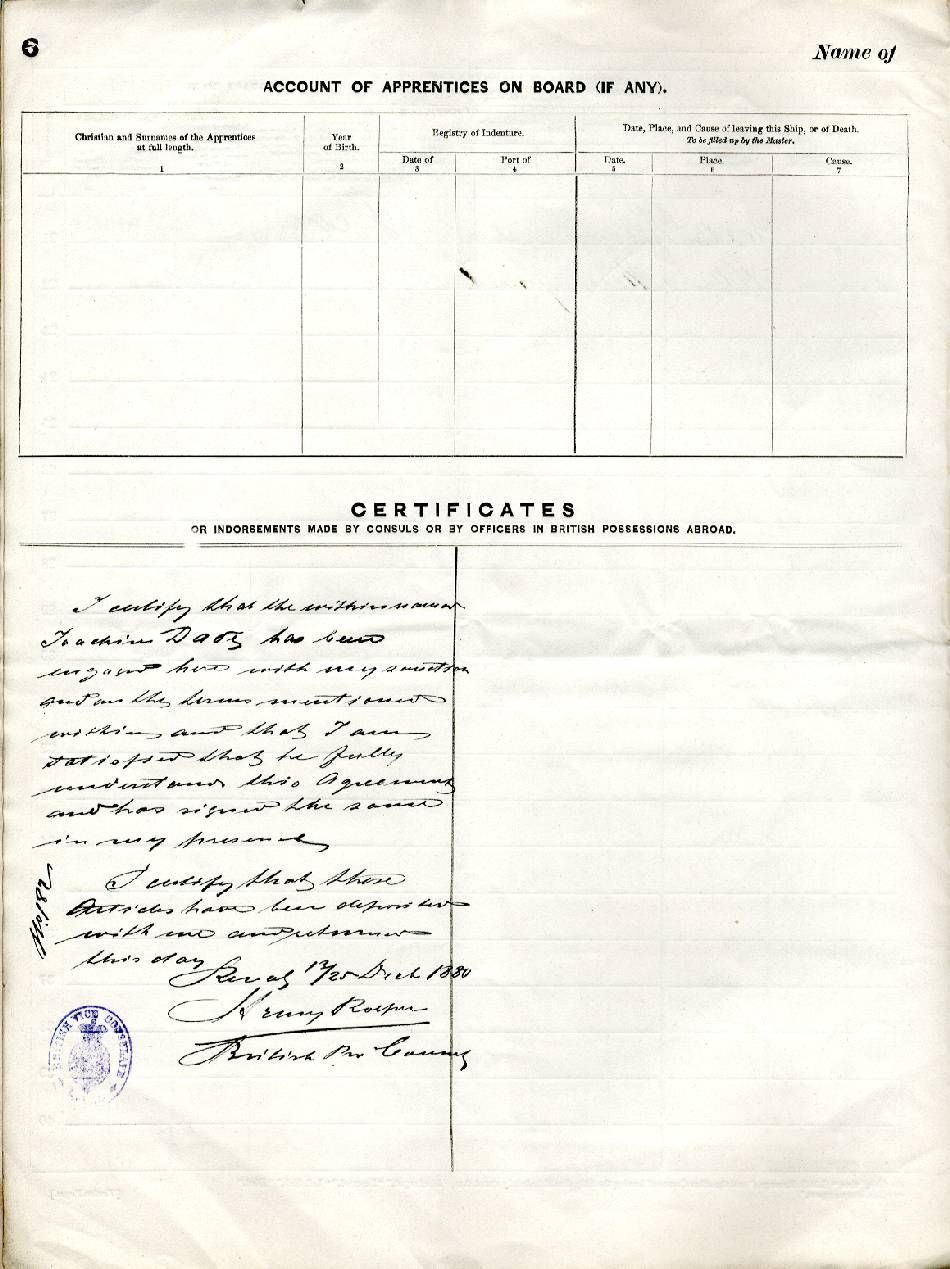 6
Name of
ACCOUNT OF APPRENTICES ON BOARD (IF ANY).
Christian and Surnames of the Apprentices
at full length.
1
Year
of Birth.
2
Registry of Indenture.
Date of
3
Port of
4
Date, Place, and Cause of leaving this Ship, or of Death.
To be filled up by the Master.
Date.
5
Place.
6
Cause.
7
CERTIFICATES
OR INDORSEMENTS MADE BY CONSULS OR BY OFFICERS IN BRITISH POSSESSIONS ABROAD.
I certify that the within named
Joachim has been
engaged here with my sanction
and on the terms mentioned
within and that I am
satisfied that he fully
understand this Agreement
and has signed the same
in my presence
I certify that these
Articles have been deposited
with me and returned
this day
Reval 13/25 Dech 1880
Henry
British Vice Consul
BRITISH VICE CONSULATE